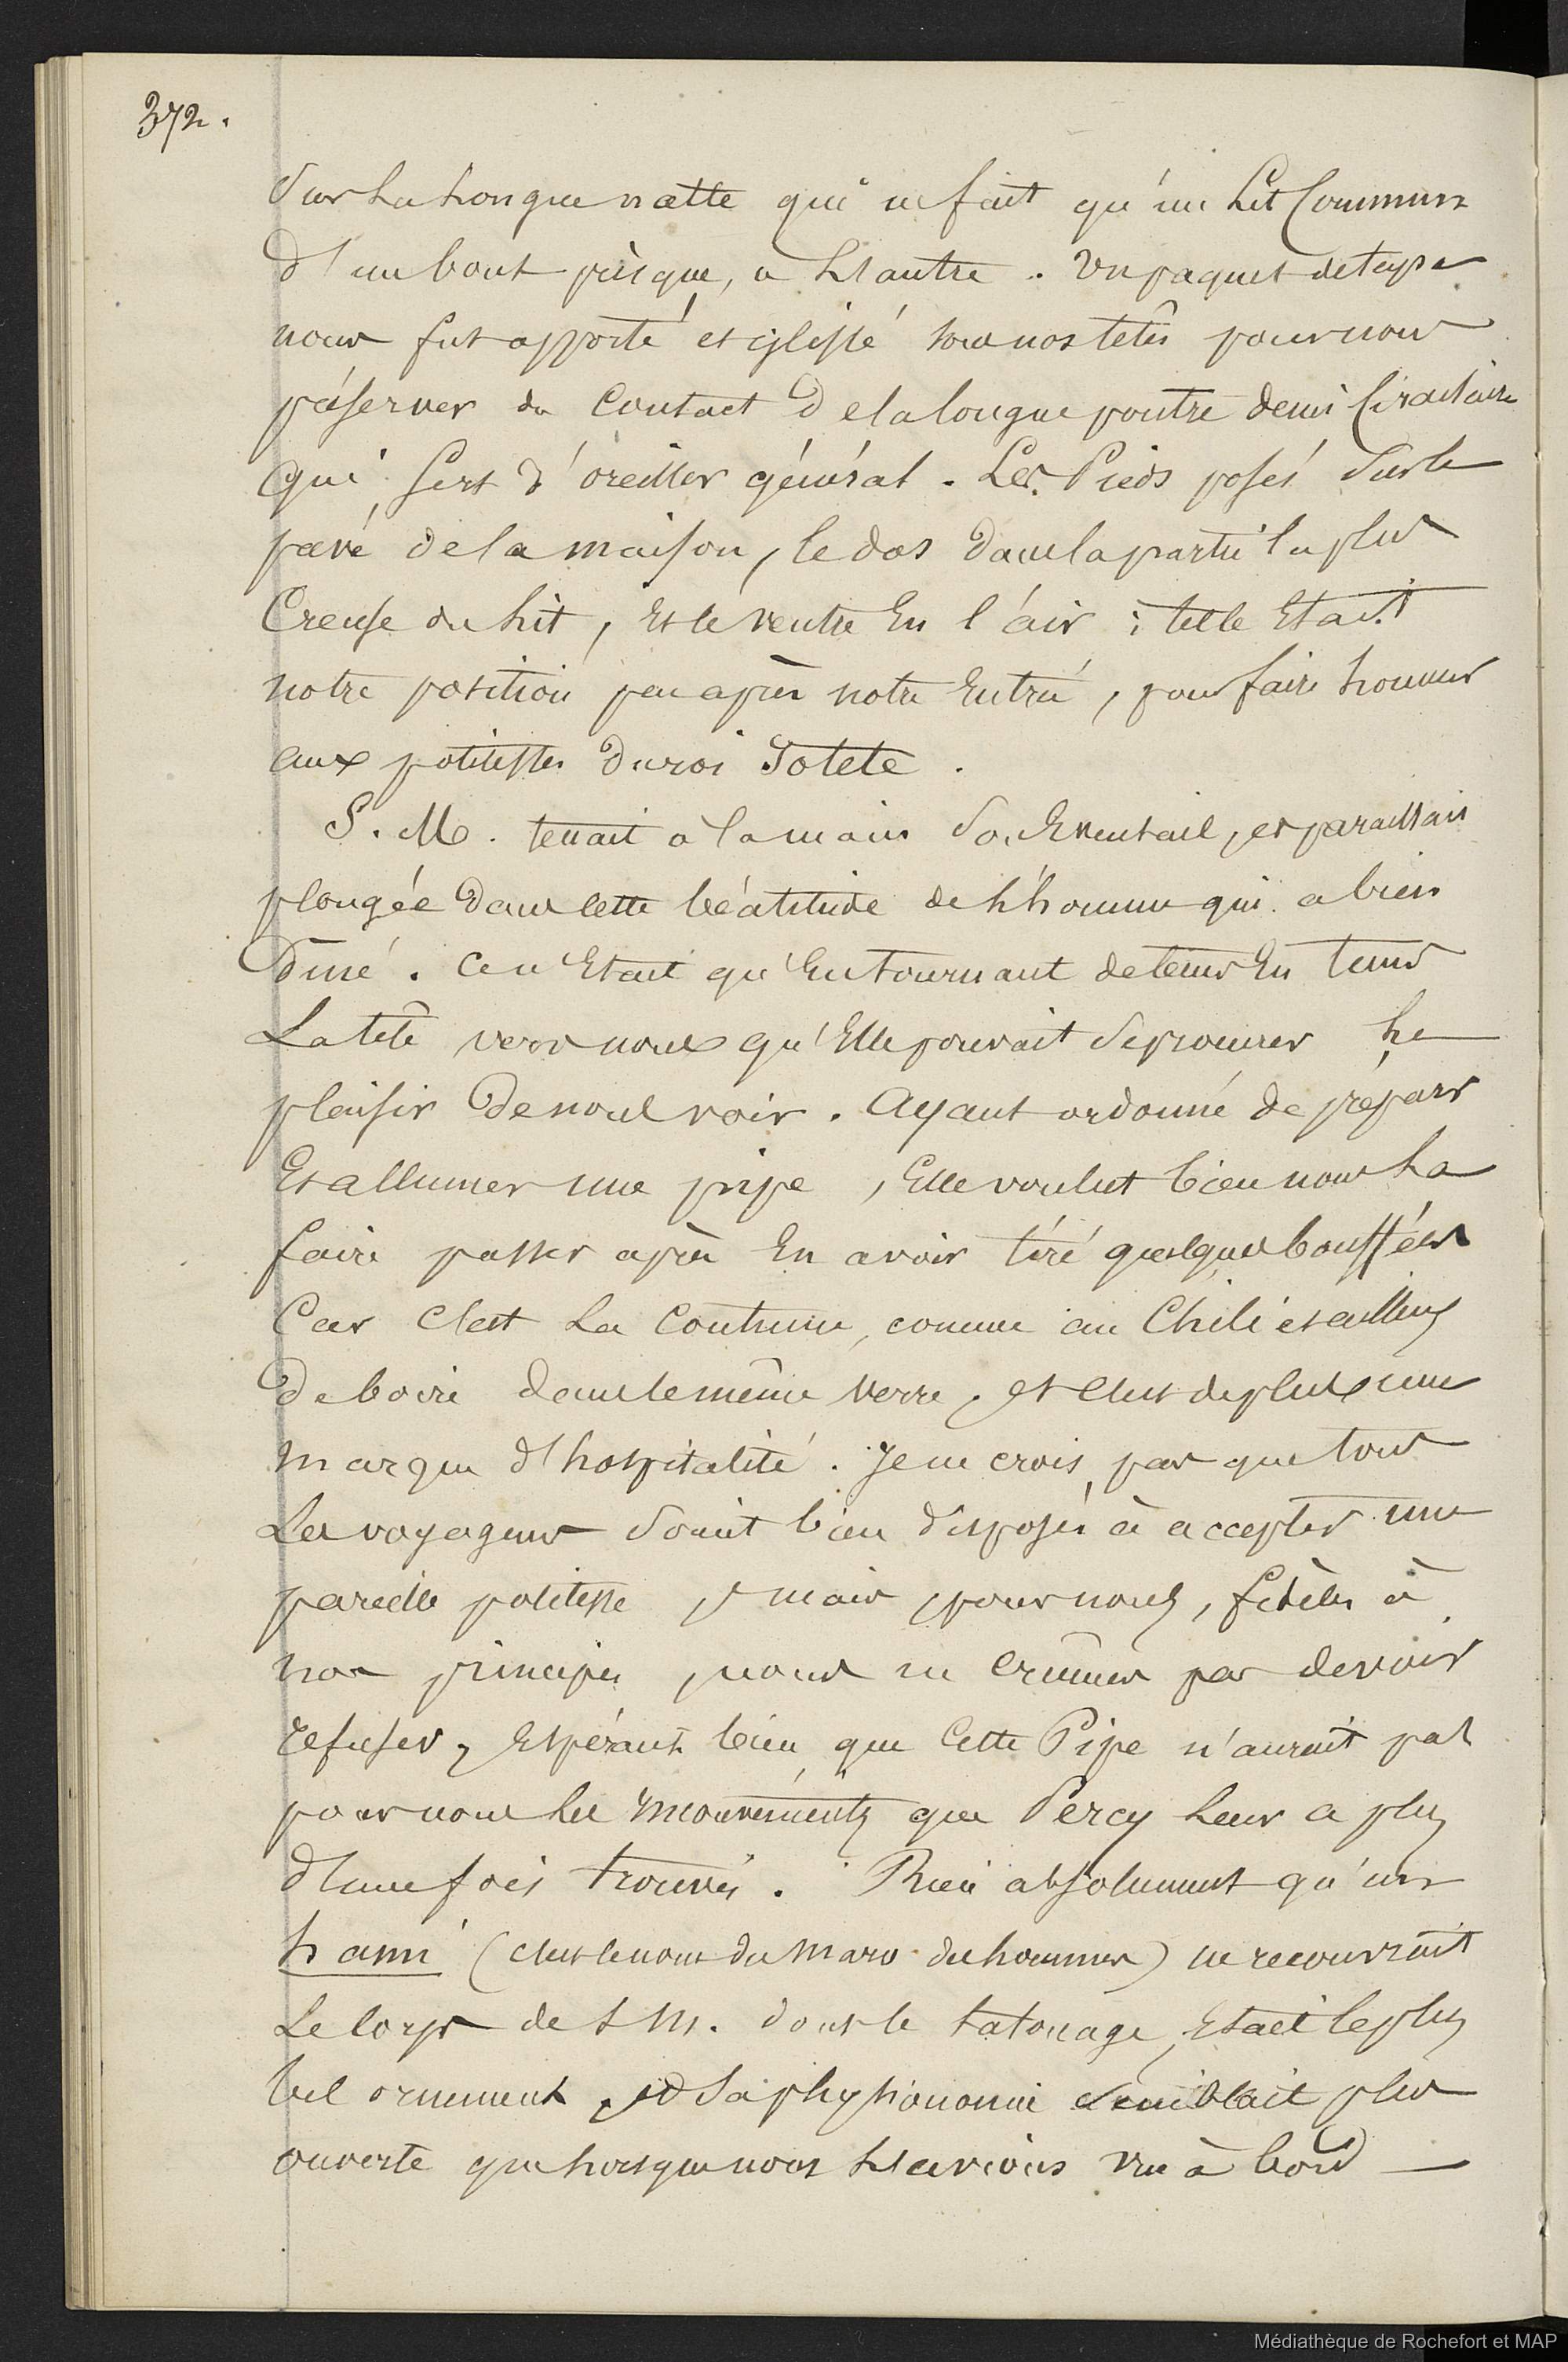 372.
Sur la longue natte qui ne fait qu'un Lit Commun
d'un bout jusque, a L'autre. Un paquet de tapa
nous fut apporté et glissé sous nos têtes pour nous
préserver du Contact de la longue poutre demi Circulaire
qui sert d'oreiller général. Les Pieds posés sur le
pavé de la maison, le dos dans la partie la plus
Creuse du lit, Et le ventre En l'air; telle Etait
notre position peu après notre Entrée, pour faire honneur
aux politesses du roi Iotete.
S. M. tenait à la main son Eventail, et paraissait
plongée dans cette béatitude de l'homme qui a bien
diné. Ce n'Etait qu'En tournant de tems En tems
La tête vers nous qu'Elle pouvait se procurer le
plaisir de nous voir. Ayant ordonné de préparer
Et allumer une pipe, Elle voulut bien nous La
faire passer après En avoir tiré quelques bouffées
Car C'est La Coutume, comme au Chili et ailleurs
De boire dans le même verre, et c'est de plus une
marque d'hospitalité. Je ne crois pas que tous
Les voyageurs soient bien disposés à accepter une
pareille politesse, mais pour nous, fidèles à
nos principes, nous ne crûmes pas devoir
refuser, Espérant bien que Cette Pipe n'aurait pas
pour nous les mouvements que Percy Leur a plus
d'une fois trouvés. Rien absolument qu'un
hami (c'est le nom du maro des hommes) ne recouvrait
Le Corps de S M. dont le tatouage Etait le plus
bel ornement, et Sa physionomie semblait plus
ouverte que lorsque nous L'avions vu à bord
Médiathèque de Rochefort et MAP